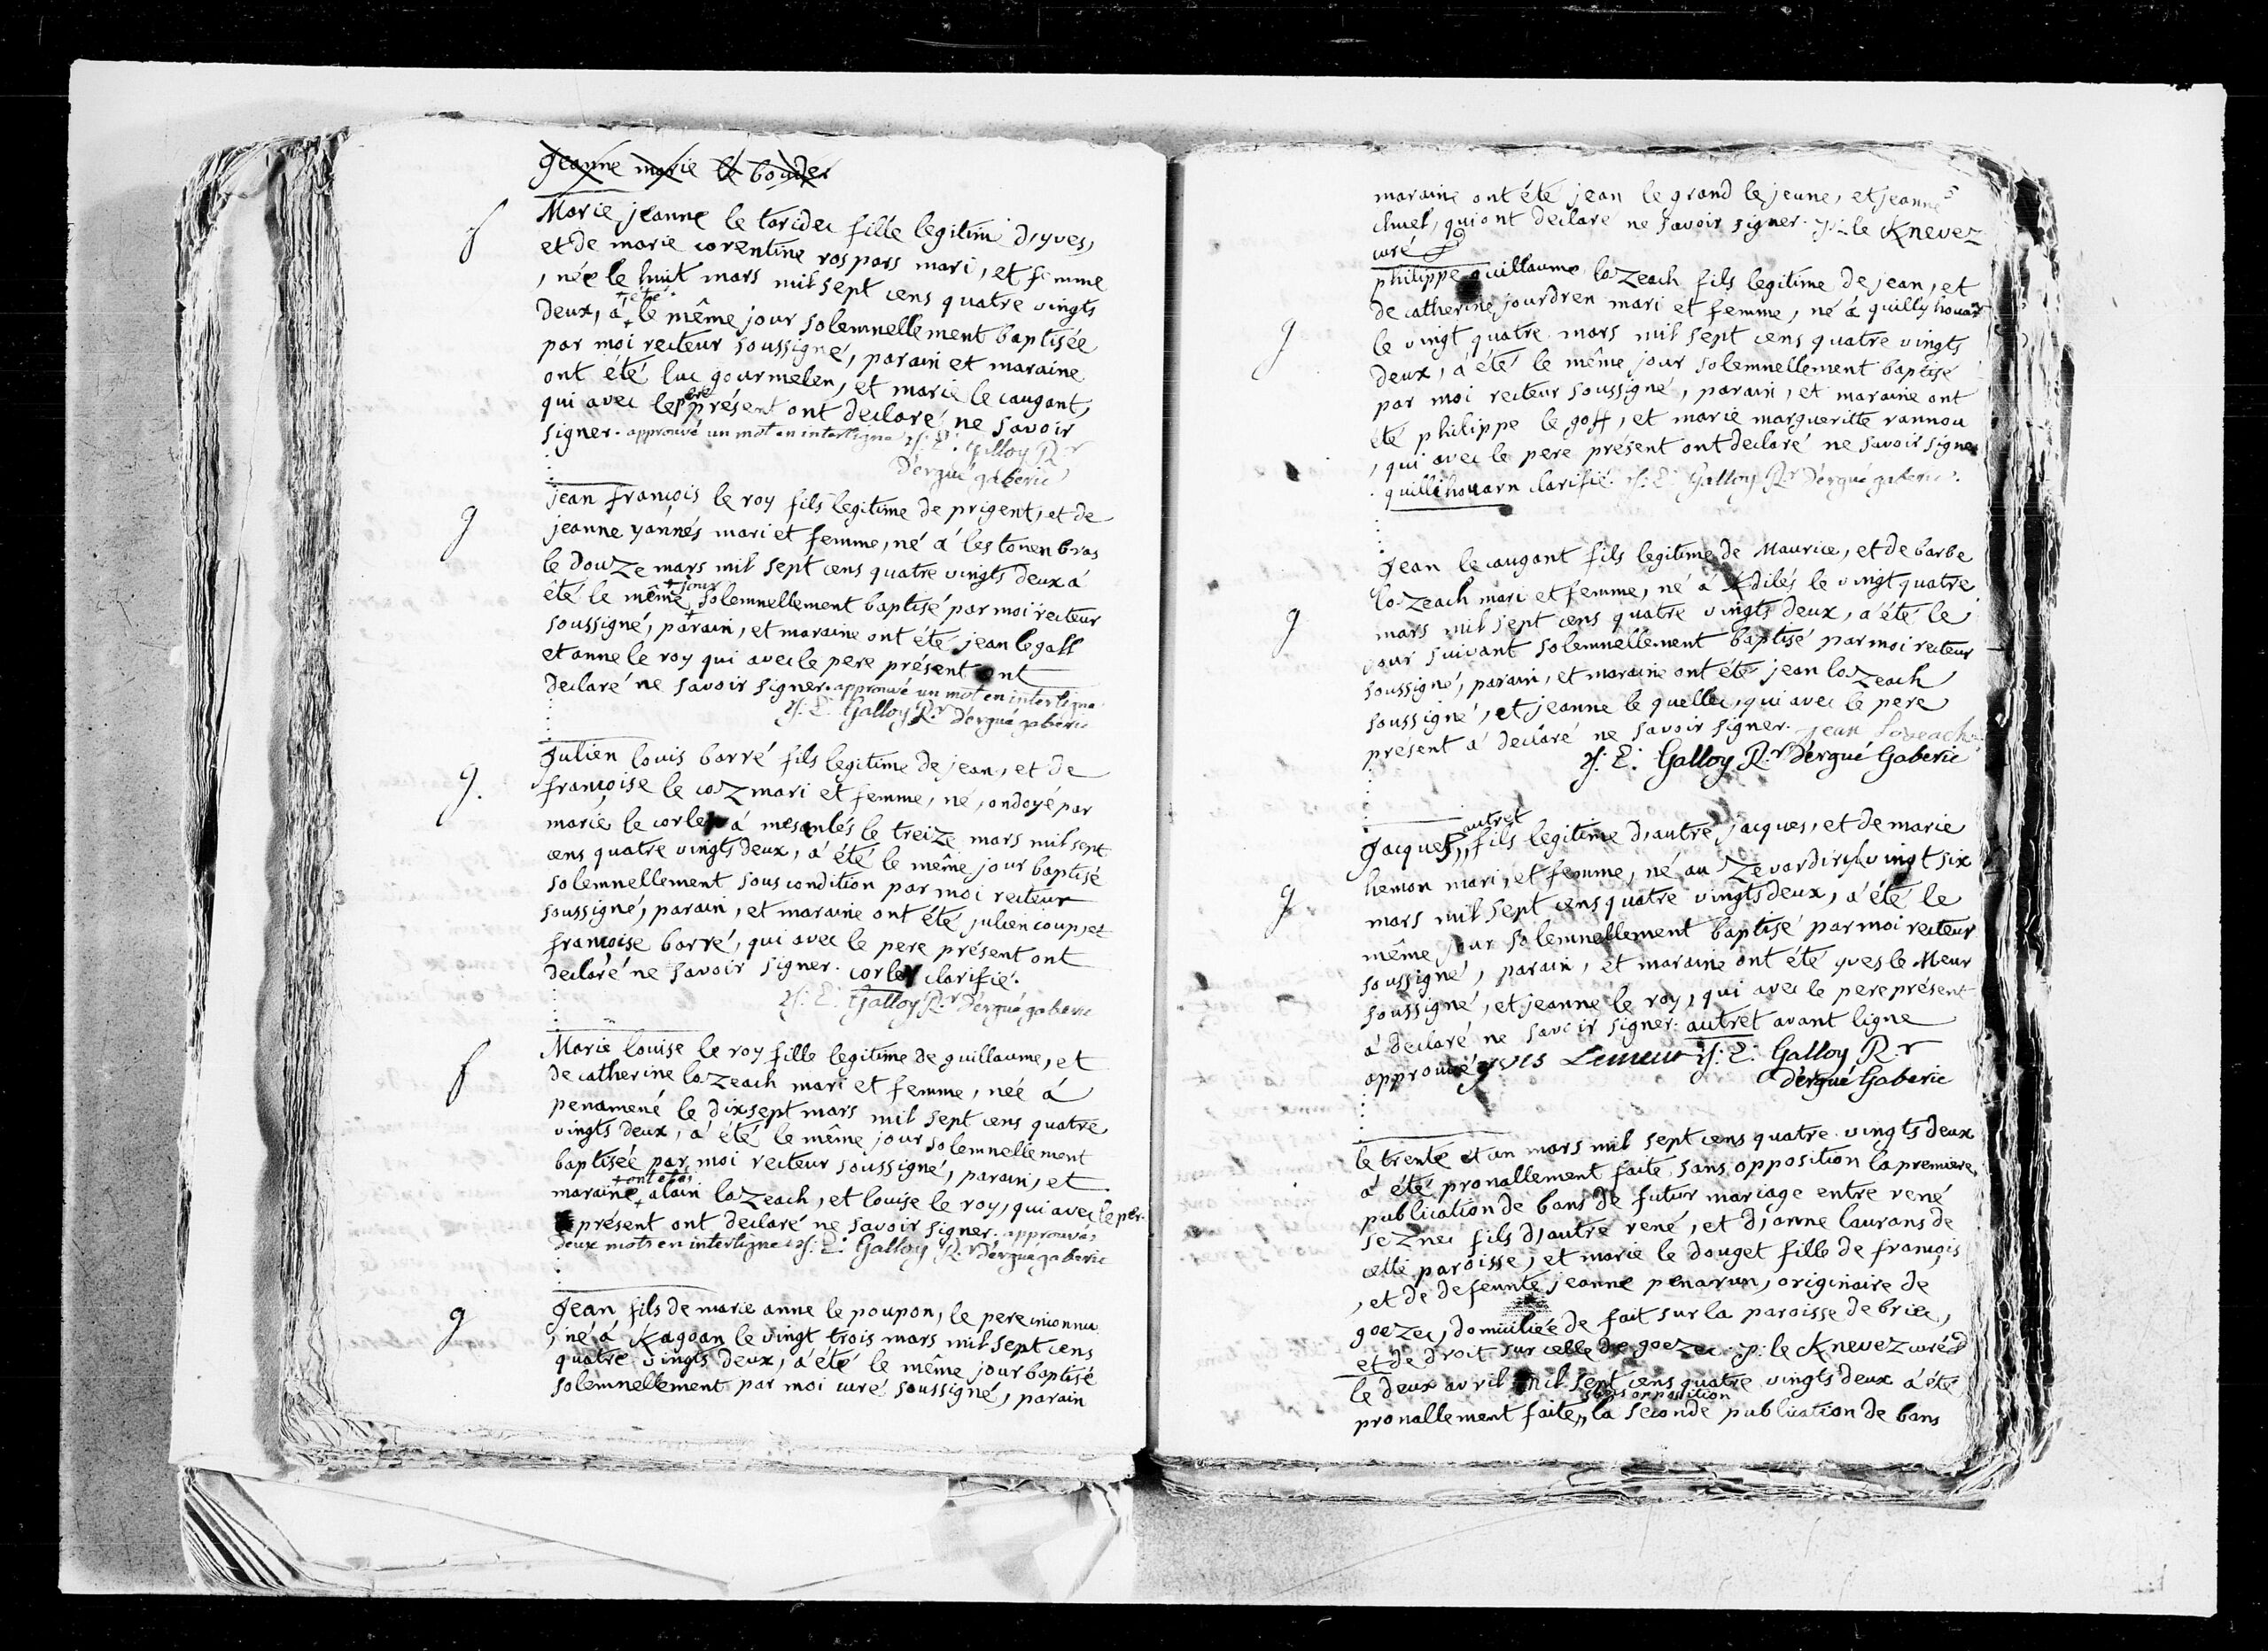 Jeanne marie le bouder
f
Marie jeanne le taridec fille legitime d,yves,
et de marie corentine rospars mari, et femme
, née le huit mars mil sept cens quatre vingts
deux, a +été+ le même jour solemnellement baptisée
par moi recteur soussigné, parain et maraine
ont été luc gourmelen, et marie le caugant,
qui avec le pere présent ont declaré ne savoir
signer. approuvé un mot en interligne y: E: Galloy R.r
D'ergué gaberic
g
jean françois le roy fils legitime de prigent, et de
jeanne yannés mari et femme, né á lestonen bras
le douze mars mil sept cens quatre vingts deux á
été le même +jour+ solemnellement baptisé par moi recteur
soussigné, parain, et maraine ont été jean le gall
et anne le roy qui avec le pere présent ont
declaré ne savoir signer. approuvé un mot en interligne
y: E: Galloy R.r D'ergué gaberic
g.
Julien louis barré fils legitime de jean, et de
françoise le coz mari et femme, né, ondoyé par
marie le corler á mesanlés le treize mars mil sept
cens quatre vingts deux, á été le même jour baptisé
solemnellement sous condition par moi recteur
soussigné, parain, et maraine ont été julien coup, et
françoise barré, qui avec le pere présent ont
declaré ne savoir signer. corler clarifié.
y: E: Galloy R.r D'ergué gaberic
f
Marie louise le roy fille legitime de guillaume, et
de catherine lozeach mari et femme, neé á
penamené le dixsept mars mil sept cens quatre
vingts deux, á été le même jour solemnellement
baptisée par moi recteur soussigné, parain, et
maraine +ont été+ alain lozeach, et louise le roy, qui avec le per
présent ont declaré ne savoir signer. approuvés
deux mots en interligne y: E: Galloy R.r D'ergué gaberic
g
Jean fils de marie anne le poupon, le pere inconnu
, né á Kagoan le vingt trois mars mil sept cens
quatre vingts deux, á été le même jour baptisé
solemnellement par moi curé soussigné, parain
maraine ont été jean le grand le jeune, et jeanne
qui ont declaré ne savoir signer. y: le Knevez
curé
g
philippe guillaume lozeach fils legitime de jean, et
de catherine jourdren mari et femme, né á quillyhouarn
le vingt quatre mars mil sept cens quatre vingts
deux, á été le même jour solemnellement baptisé
par moi recteur soussigné, parain, et maraine ont
été philippe le goff, et marie margueritte rannou
, qui avec le pere présent ont declaré ne savoir signer
. quillihouarn clarifié. y: E: Galloy R.r D'ergué gaberic.
g
Jean le caugant fils legitime de Maurice, et de barbe
lozeach mari et femme, né á Kdilés le vingt quatre
mars mil sept cens quatre vingts deux, a été le
jour suivant solemnellement baptisé par moi recteur
soussigné, parain, et maraine ont été jean lozeach
soussigné, et jeanne le quellec, qui avec le pere
présent á declaré ne savoir signer. jean Lozeach
y: E: Galloy R.r D'ergué Gaberic
g
Jacques autret fils legitime d,autre jacques, et de marie
hemon mari, et femme, né au le vingt six
mars mil sept cens quatre vingts deux, á été le
même jour solemnellement baptisé par moi recteur
soussigné, parain, et maraine ont été yves le Meur
soussigné, et jeanne le roy, qui avec le pere présent
á declaré ne savoir signer. autret avant ligne
approuvé yves Lemeur y: E: Galloy R.r
D'ergué Gaberic
le trente et un mars mil sept cens quatre vingts deux
á été pronallement faite sans opposition la premiere
publication de bans de futur mariage entre rené
seznec fils d,autre rené, et d,anne laurans de
cette paroisse, et marie le douget fille de françois
, et de defeunte jeanne penarun, originaire de
goezec, domiciliée de fait sur la paroisse de briec,
et de droit sur celle de goezec. y: le Knevez curé
le deux avril mil sept cens quatre vingts deux á été
pronallement faite sans opposition la seconde publication de bans